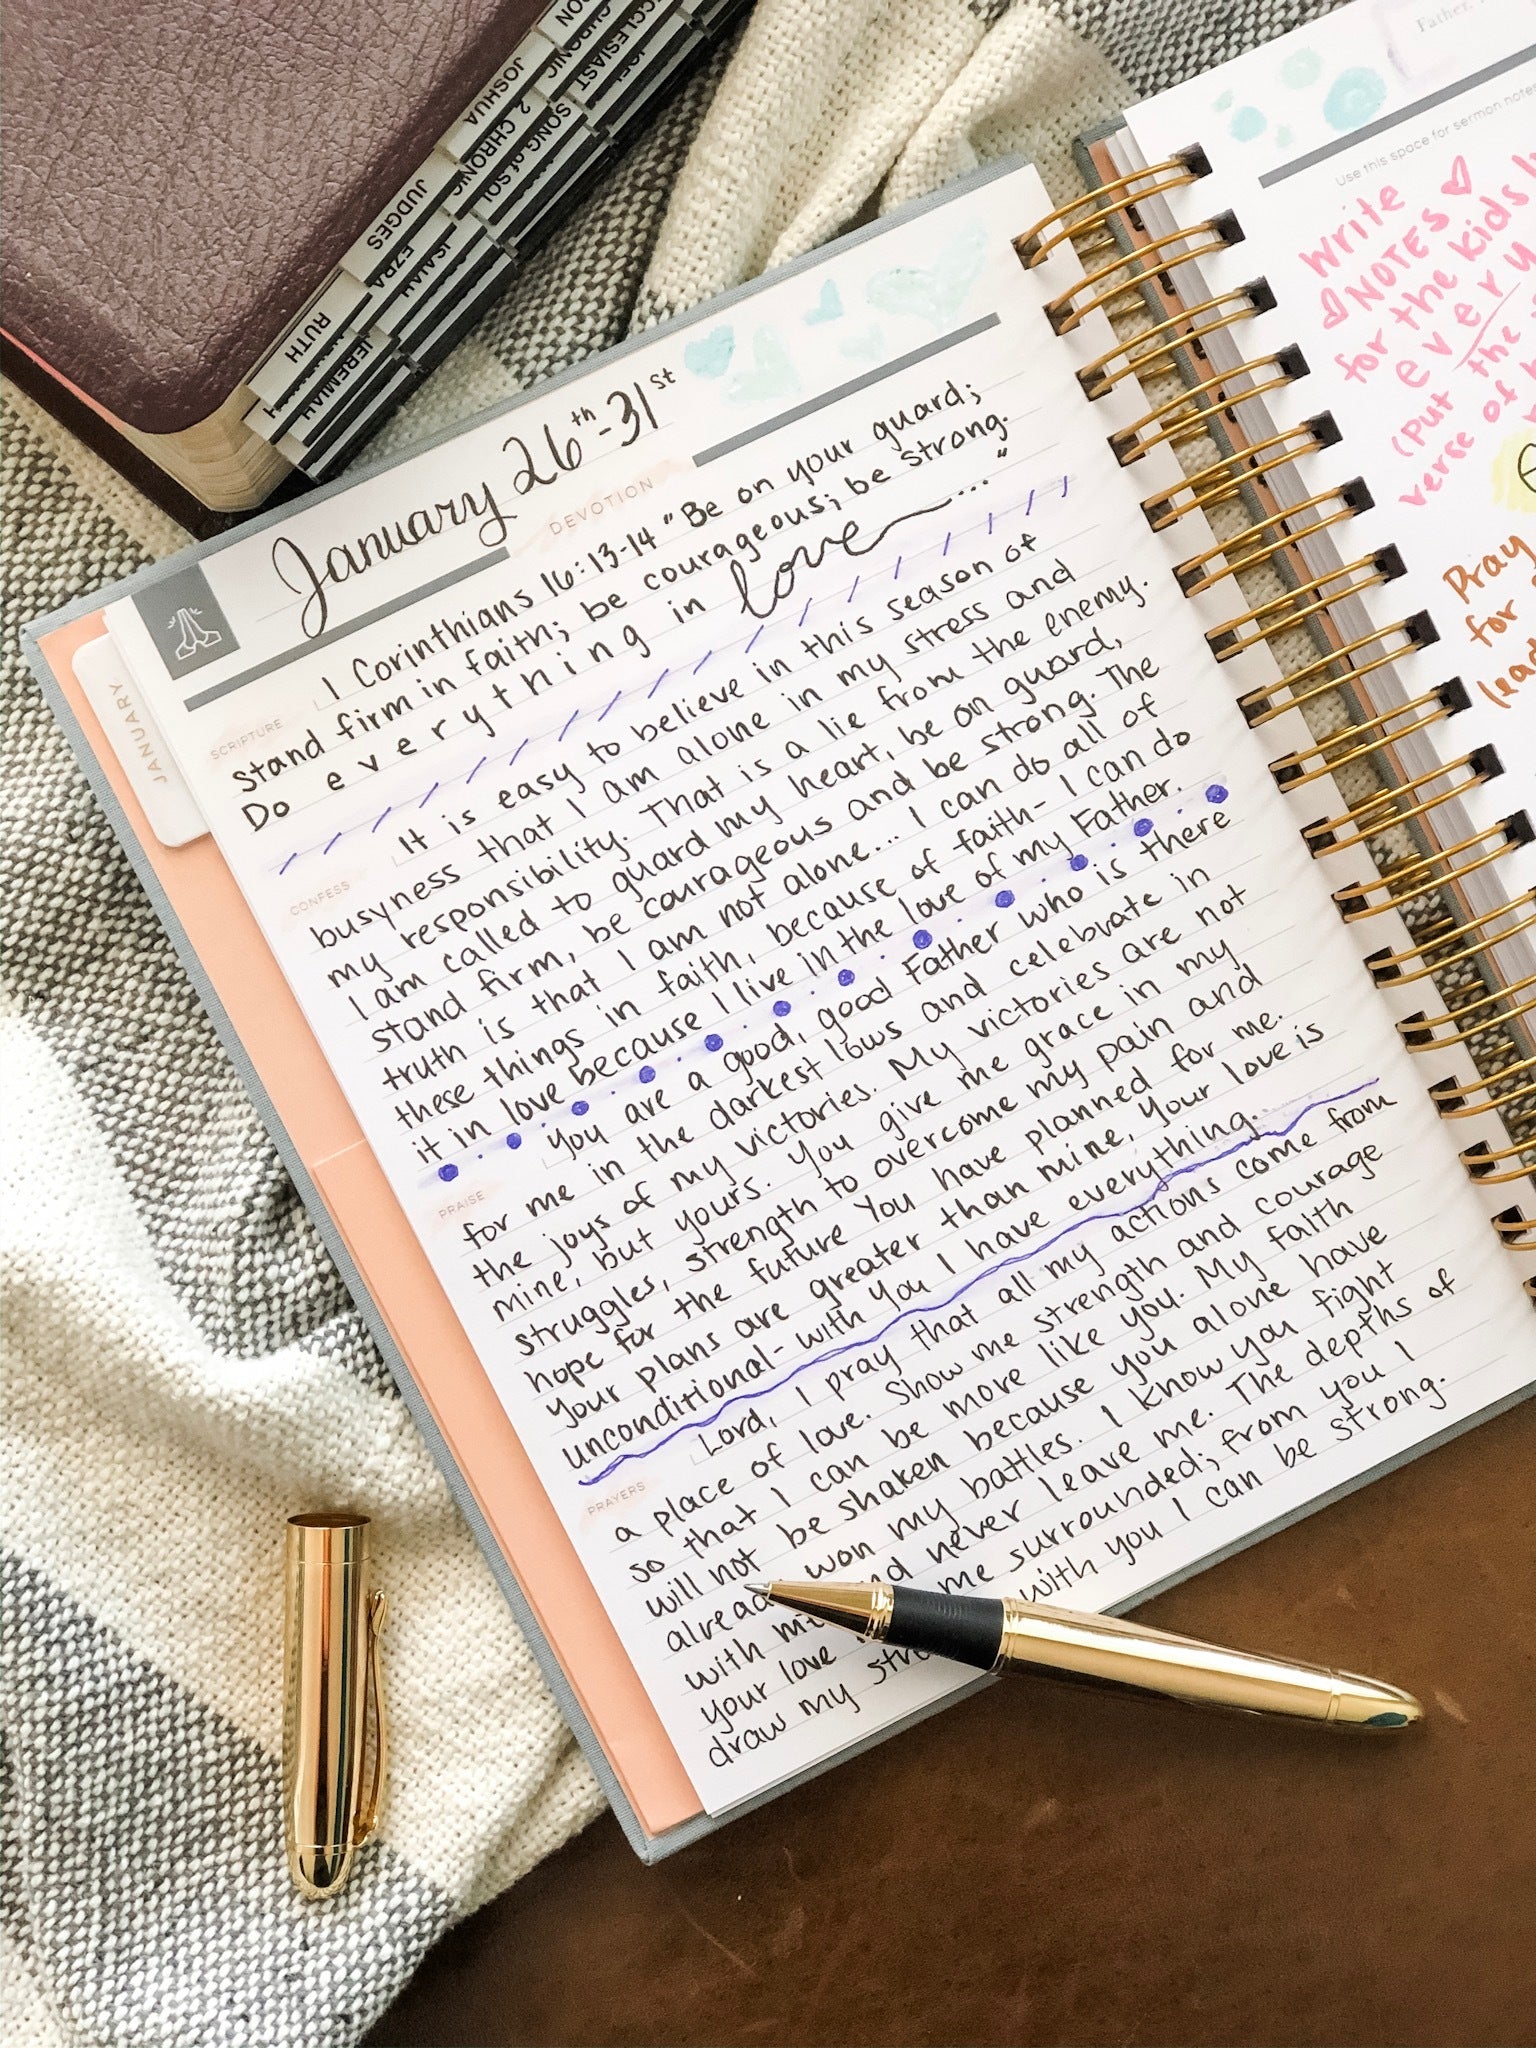 CHRONIC
ECCLESIAST
JOEL
JOSHUA
2 CHRONIC
SONG of SOL
JUDGES
EZRA
ISAIAH
RUTH
JEREMIAH
January 26th-31st
DEVOTION
JANUARY
SCRIPTURE
1 Corinthians 16:13-14 "Be on your guard;
stand firm in faith; be courageous; be strong.
Do everything in love..."
CONFESS
It is easy to believe in this season of
busyness that I am alone in my stress and
my responsibility. That is a lie from the enemy.
I am called to guard my heart, be on guard,
stand firm, be courageous and be strong. The
truth is that I am not alone... I can do all of
these things in faith, because of faith- I can do
it in love because I live in the love of my Father.
PRAISE
You are a good, good Father who is there
for me in the darkest lows and celebrate in
the joys of my victories. My victories are not
mine, but yours. You give me grace in my
struggles, strength to overcome my pain and
hope for the future You have planned for me.
Your plans are greater than mine, your love is
unconditional- with you I have everything.
PRAYERS
Lord, I pray that all my actions come from
a place of love. Show me strength and courage
so that I can be more like you. My faith
will not be shaken because you alone have
already won my battles. I know you fight
with me and never leave me. The depths of
your love me surrounded; from you I
draw my with you I can be strong.
Father,
Use this space for sermon notes
Write
NOTES
for the kids
every
(put the
verse of
Pray
for